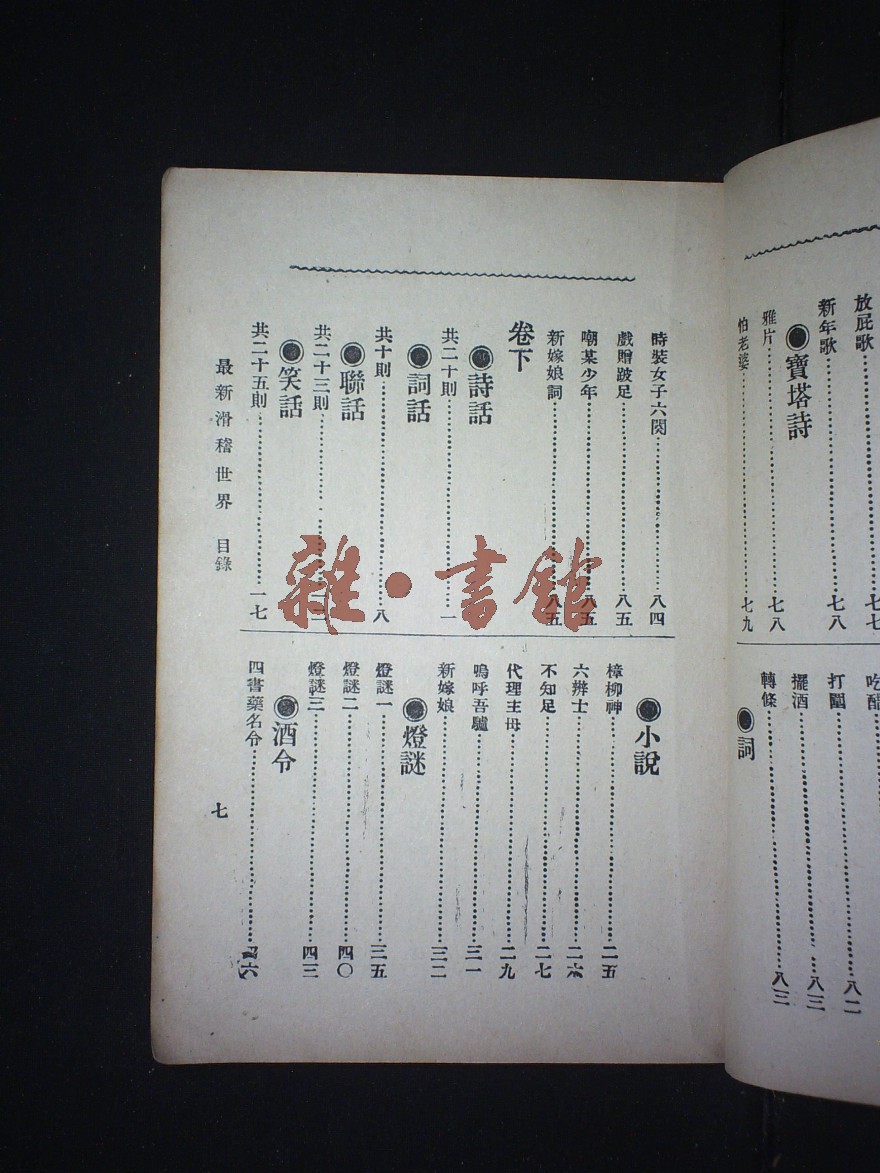 放屁歌……七七
新年歌……七八
寶塔詩
雅片……七八
怕老婆……七九
吃醋
打圍……八二
擺酒……八三
轉條……八三
詞
時裝女子六闋……八四
戲贈跛足……八五
嘲某少年……八五
新嫁娘詞……八五
卷下
詩話
共二十則……一
詞話
共十則……八
聯話
共二十三則……
笑話
共二十五則……一七
小說
樟柳神……二五
六辨士……二六
不知足……二七
代理主母……二九
嗚呼吾驢……三一
新嫁娘……三二
燈謎
燈謎一……三五
燈謎二……四〇
燈謎三……四三
酒令
四書藥名令……四六
最新滑稽世界 目錄
七
雜·書館